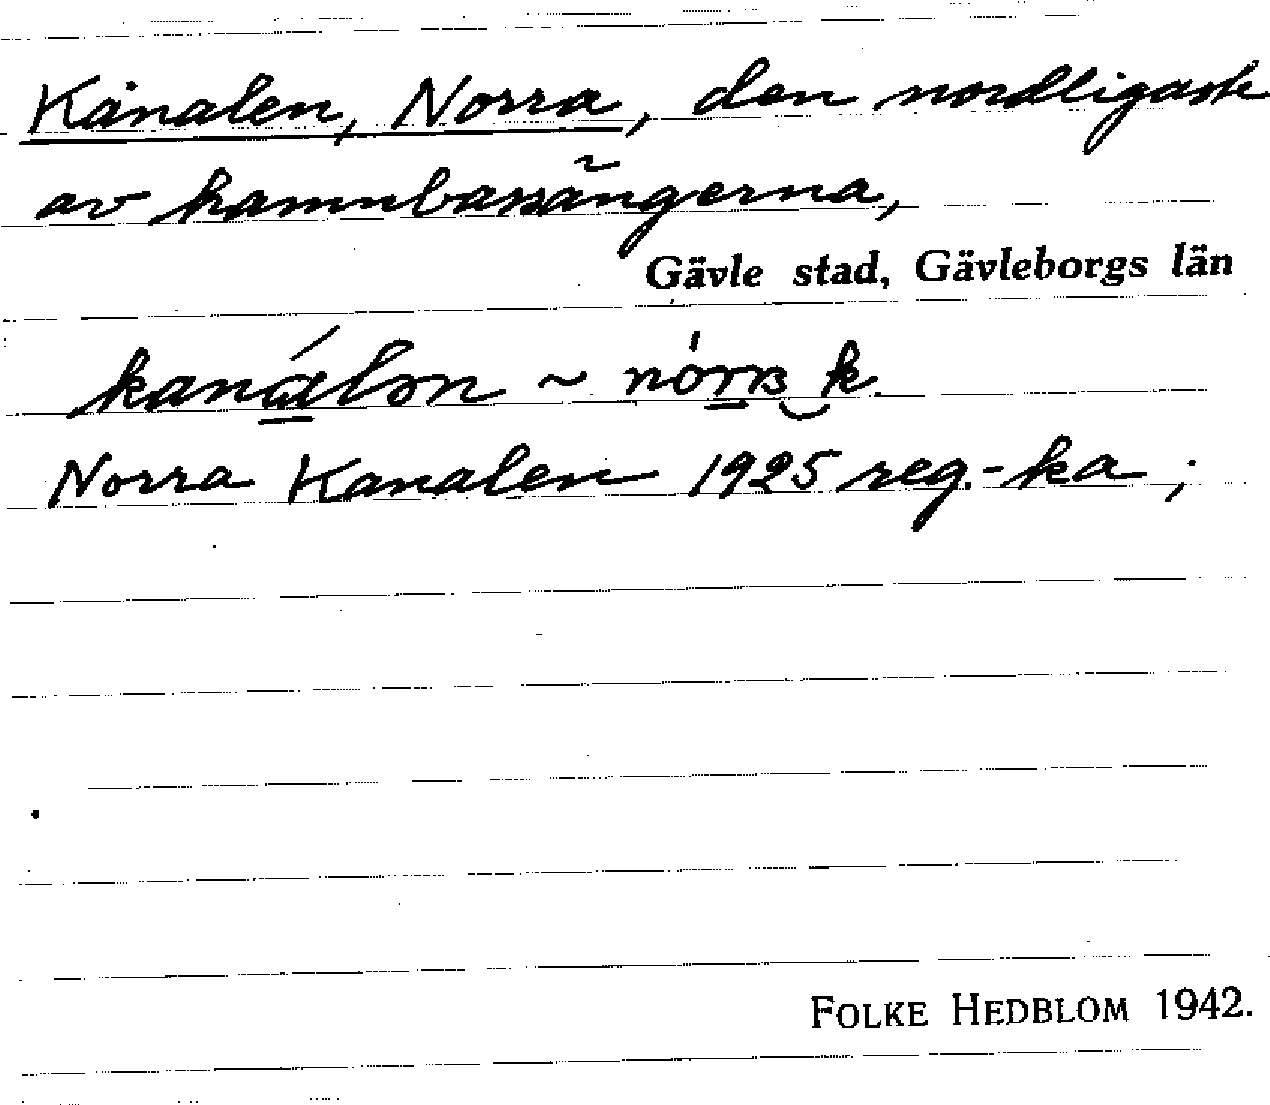 Kanalen, Norra, den nordligaste
av hamnbassängerna,
Gävle stad, Gävleborgs län
kanálən ~ nórrɐ k.
Norra Kanalen 1925 reg.-ka ;
FOLKE HEDBLOM 1942.